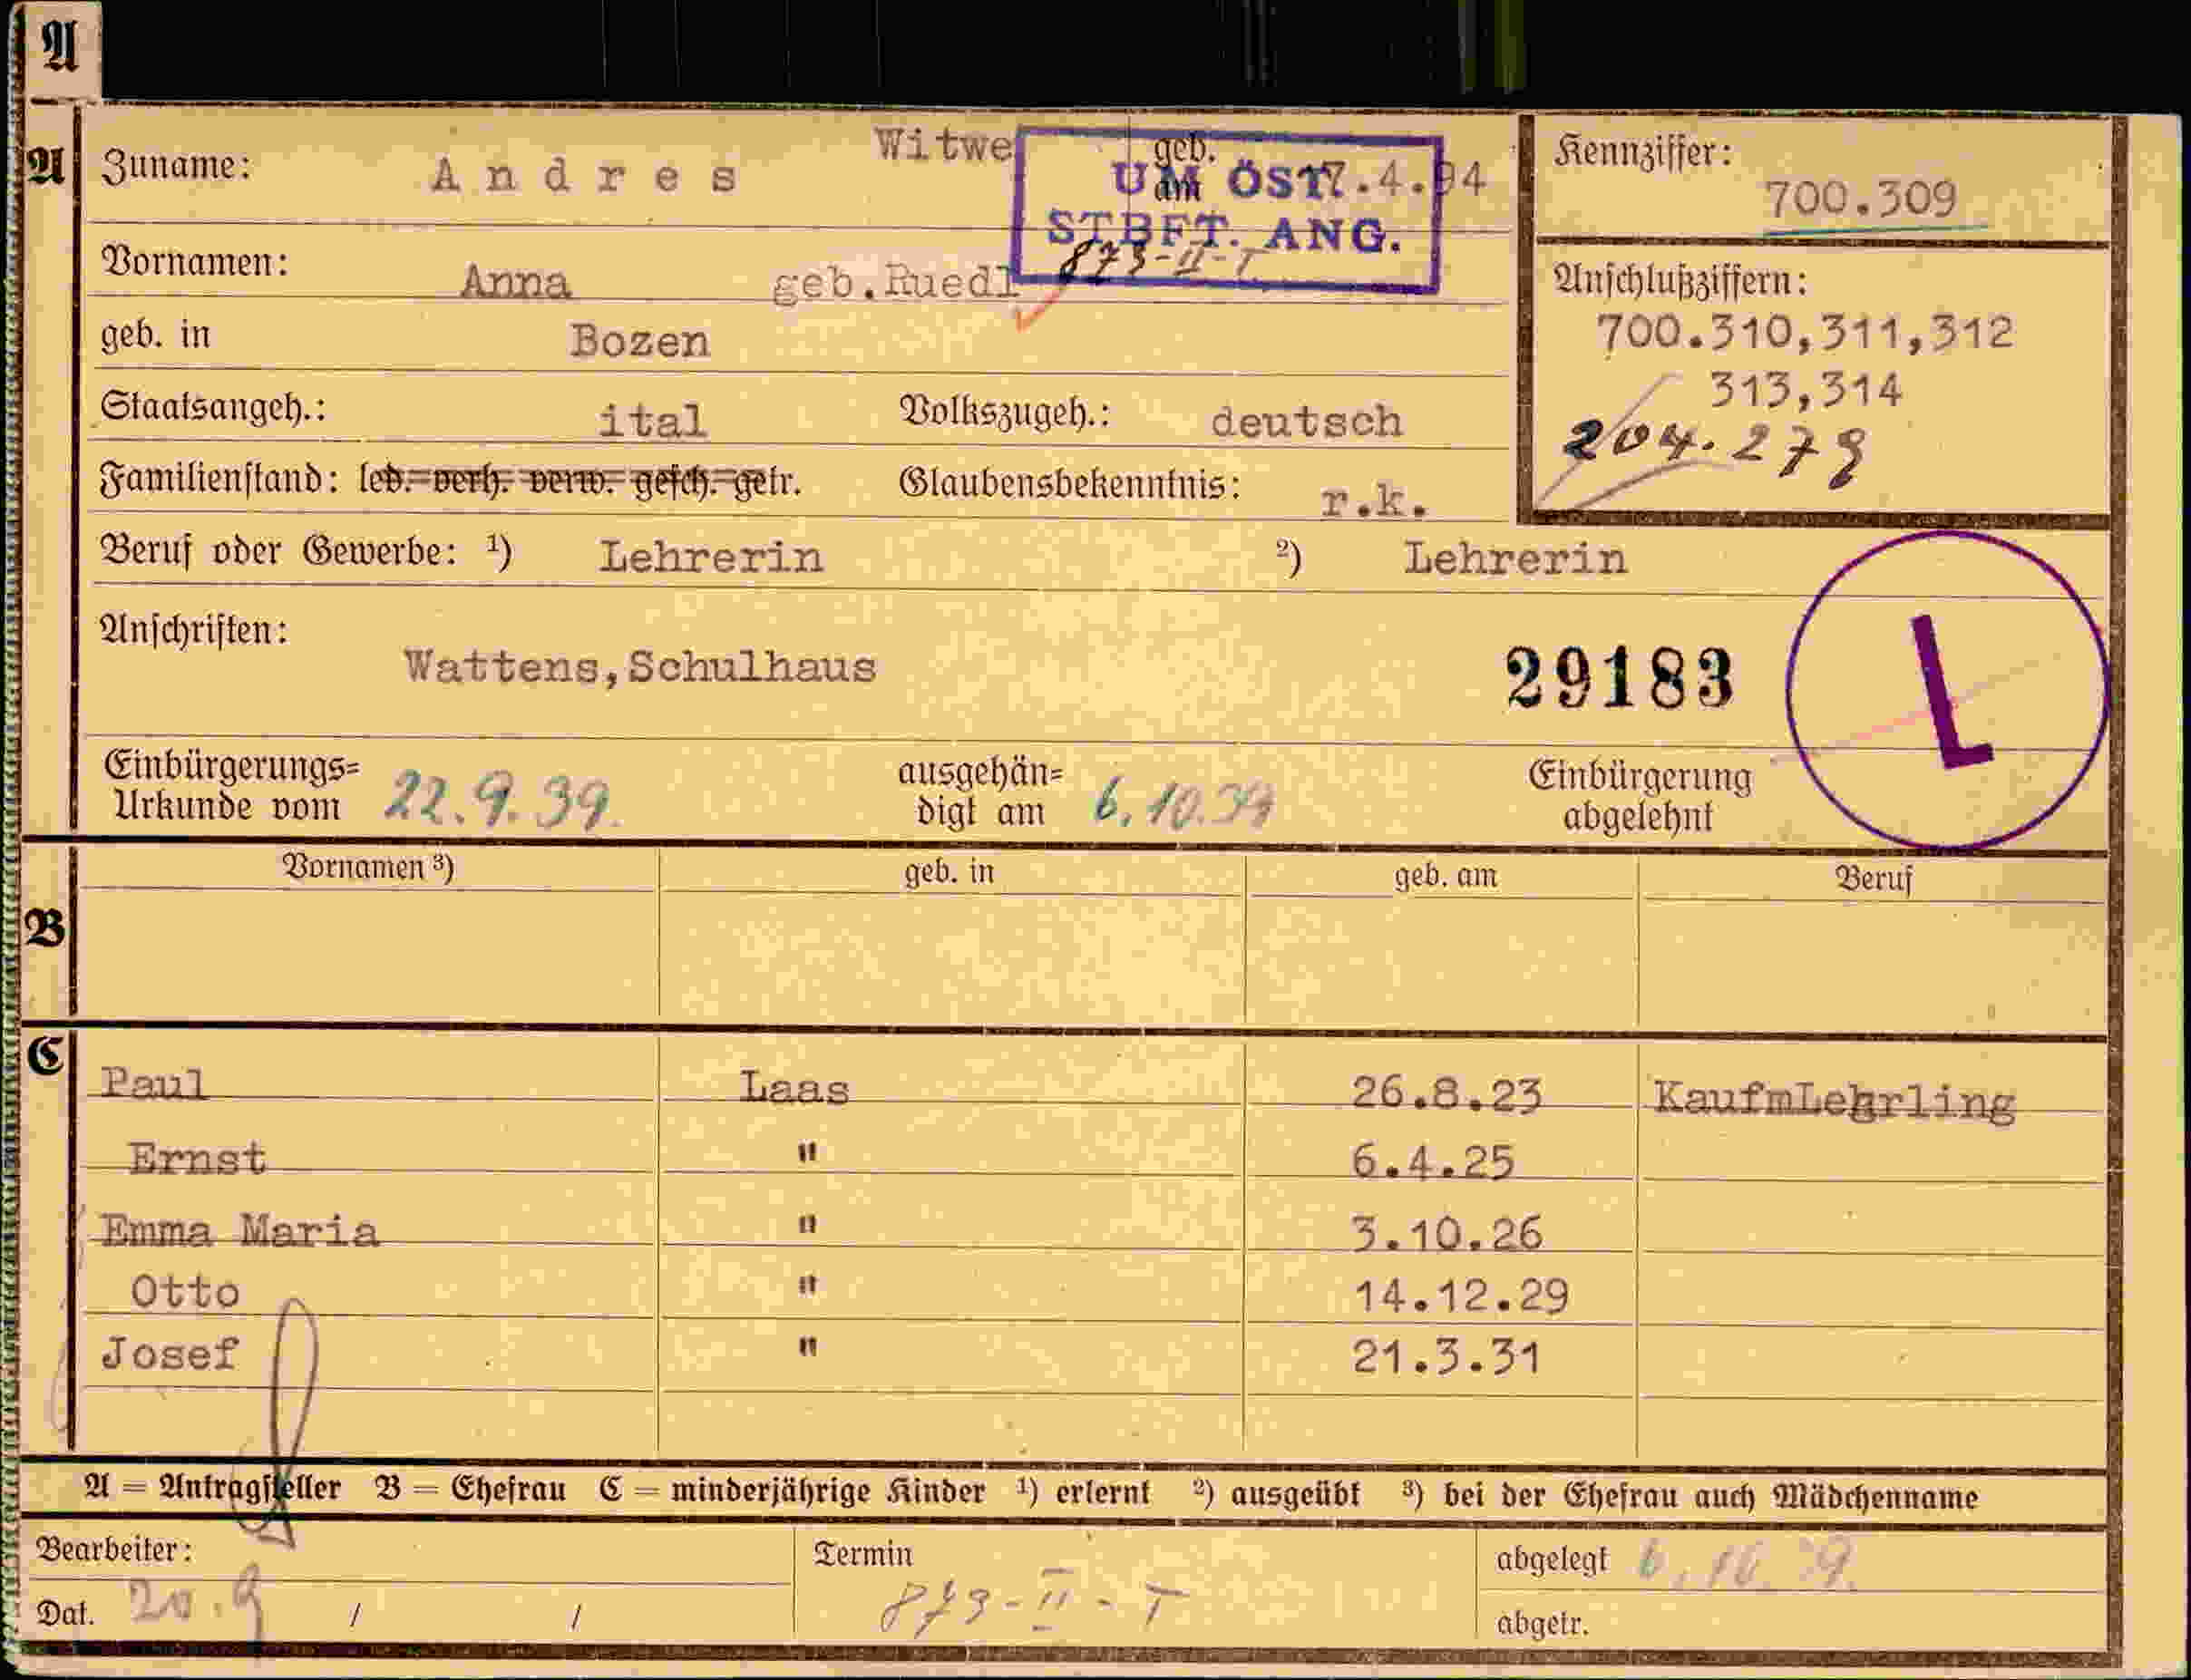 A
A
Zuname: Andres Witwe geb. am 17.4.94
UM ÖST.
STBFT. ANG.
873-II-T
Kennziffer:
700.309
Vornamen: Anna geb.Ruedl
Anschlußziffern:
700.310,311,312
313,314
204.278
geb. in Bozen
Staatsangeh.: ital Volkszugeh.: deutsch
Familienstand: led. verh. verw. gesch. getr. Glaubensbekenntnis: r.k.
Beruf oder Gewerbe: ¹) Lehrerin ²) Lehrerin
Anschriften: Wattens,Schulhaus
29183
L
Einbürgerungs=
Urkunde vom 22.9.39.
ausgehän=
digt am 6.10.39
Einbürgerung
abgelehnt
B
Vornamen ³) geb. in geb. am Beruf
C
Paul Laas 26.8.23 KaufmLehrling
Ernst " 6.4.25
Emma Maria " 3.10.26
Otto " 14.12.29
Josef " 21.3.31
A = Antragsteller B = Ehefrau C = minderjährige Kinder ¹) erlernt ²) ausgeübt ³) bei der Ehefrau auch Mädchenname
Bearbeiter:
Dat. 20.9 / /
Termin
873-II-T
abgelegt
abgetr.